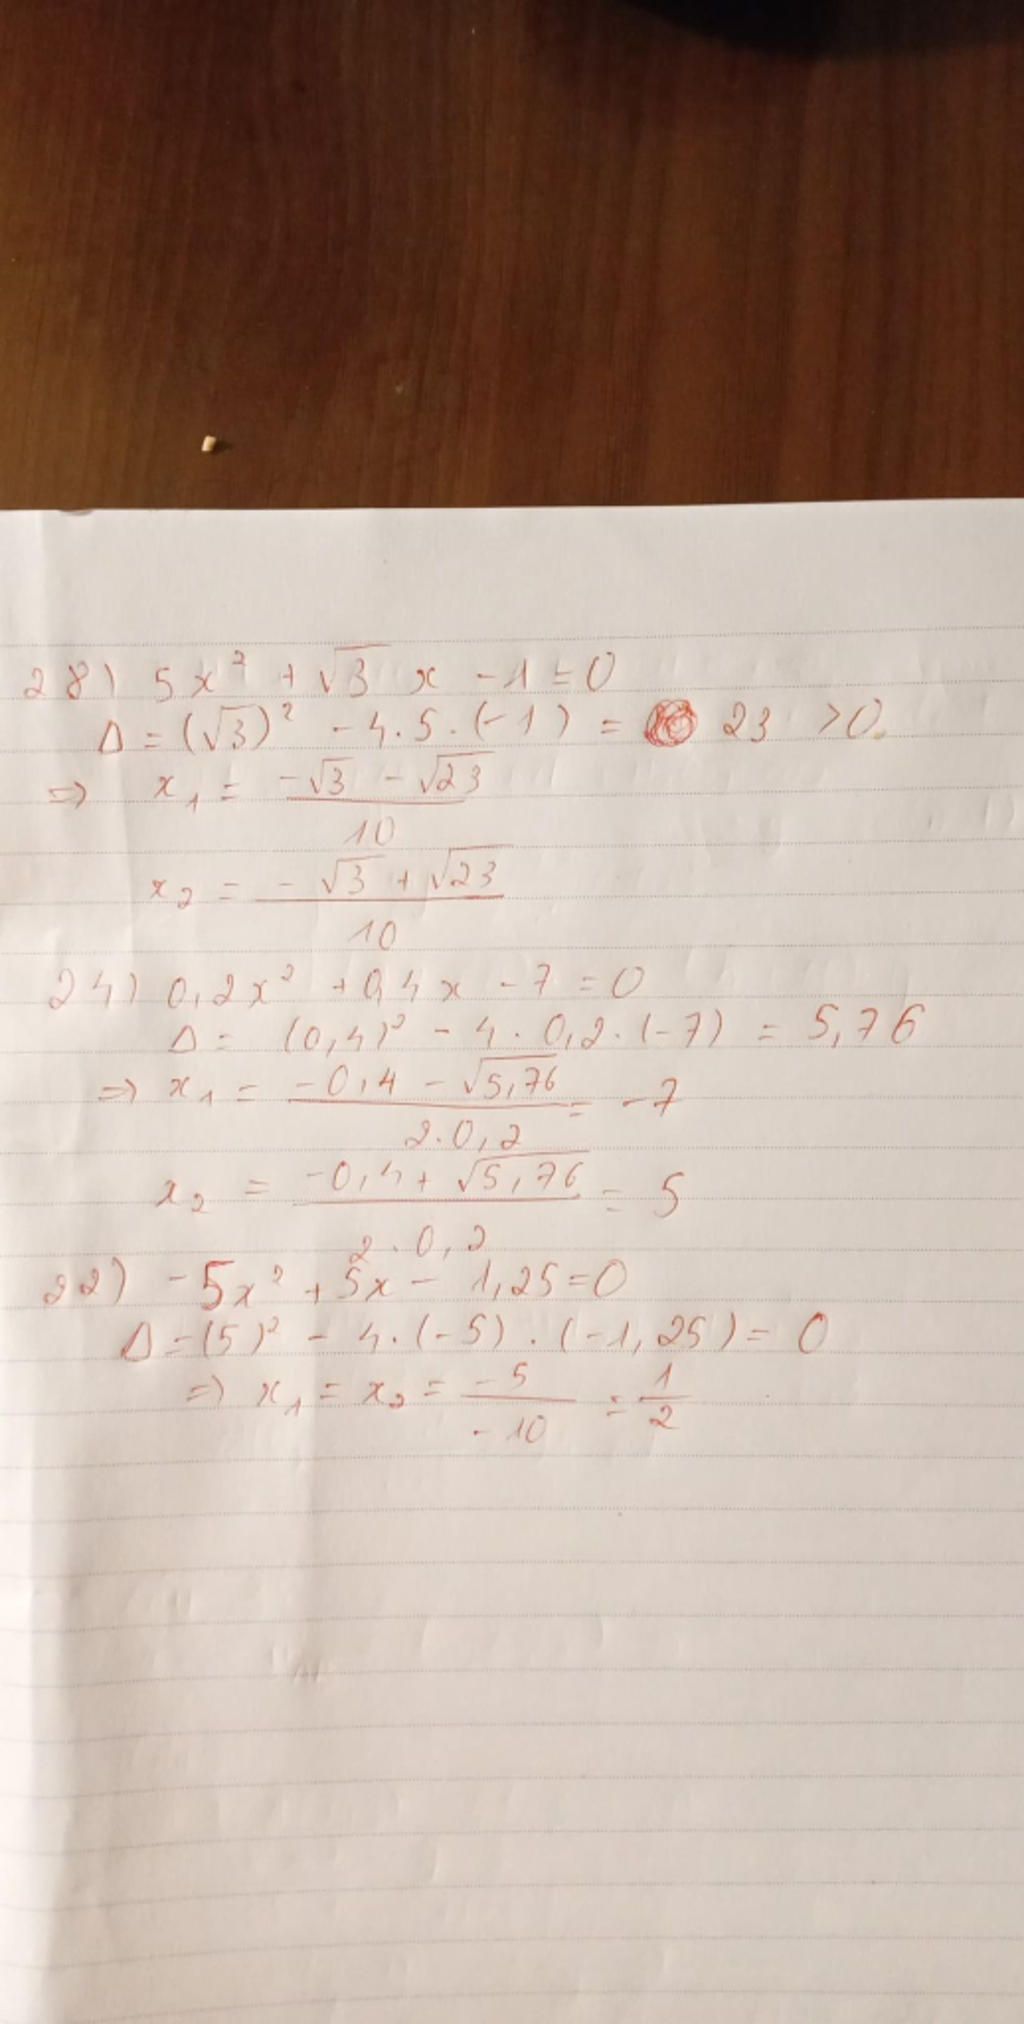 28) 5x² + √3 x - 1 = 0
Δ = (√3)² - 4.5.(-1) = 23 >0
=> x₁ = (-√3 - √23)/10
x₂ = (-√3 + √23)/10
24) 0,2x² + 0,4x - 7 = 0
Δ = (0,4)² - 4 . 0,2 . (-7) = 5,76
=> x₁ = (-0,4 - √5,76)/(2.0,2) = -7
x₂ = (-0,4 + √5,76)/(2.0,2) = 5
22) -5x² + 5x - 1,25 = 0
Δ = (5)² - 4.(-5).(-1,25) = 0
=> x₁ = x₂ = -5/-10 = 1/2